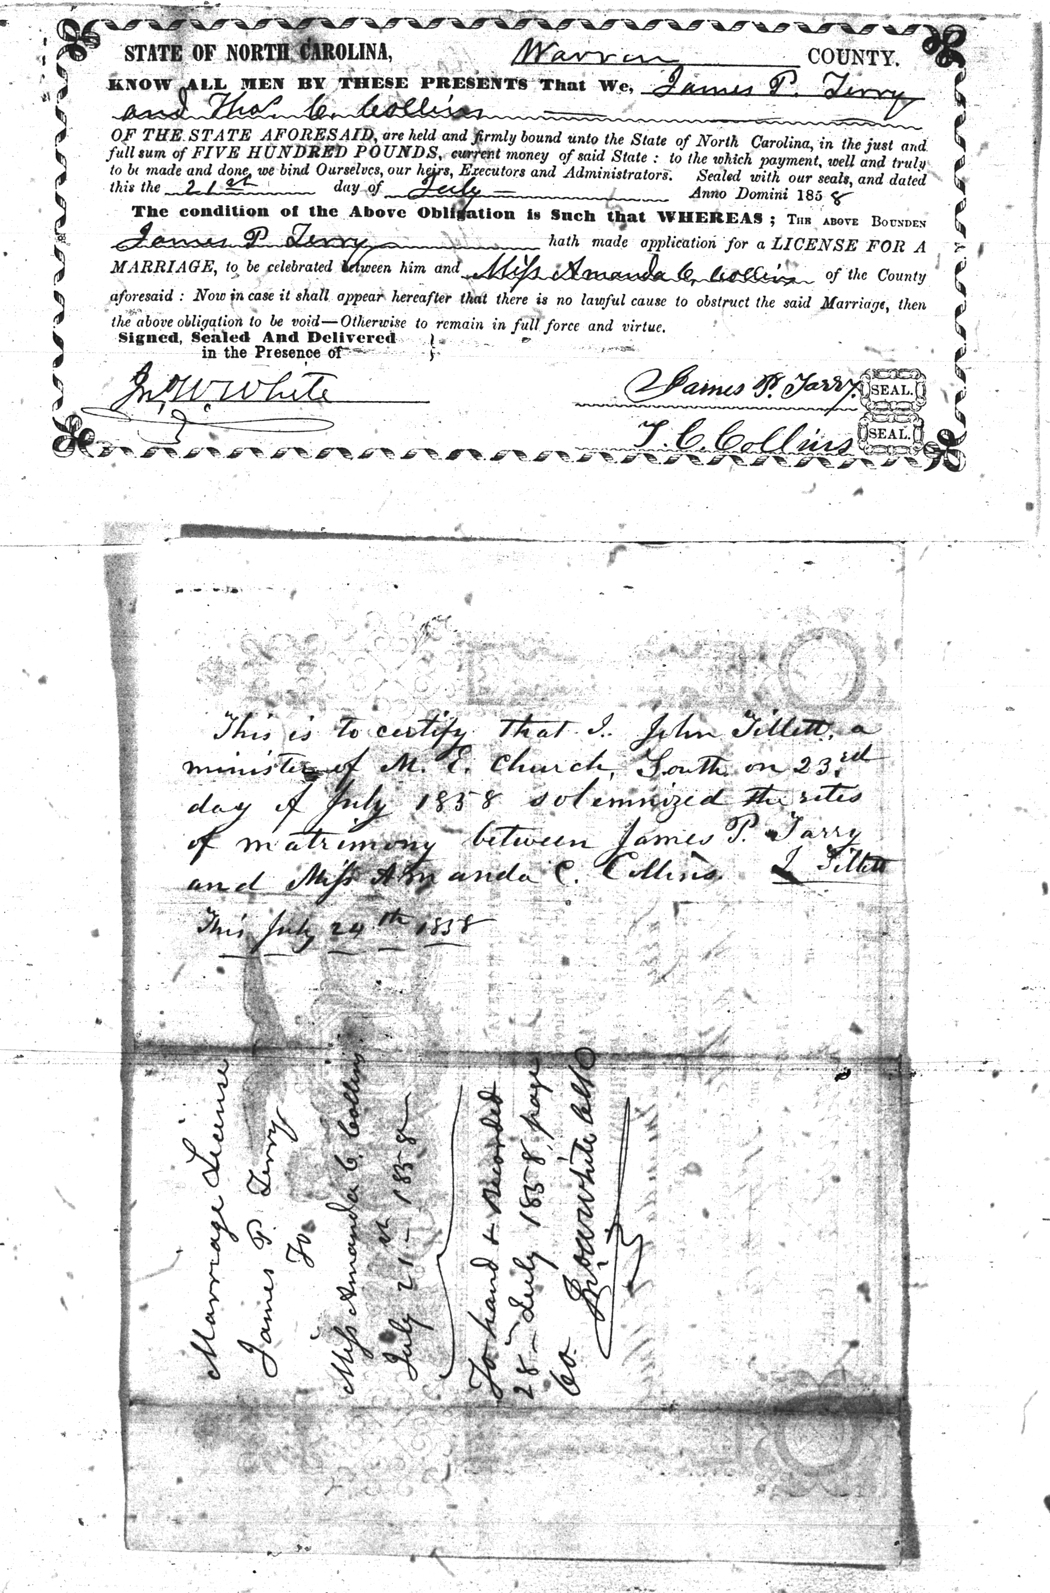 STATE OF NORTH CAROLINA, Warren COUNTY.
KNOW ALL MEN BY THESE PRESENTS That We, James P. Terry
and Thos. C. Collins
OF THE STATE AFORESAID, are held and firmly bound unto the State of North Carolina, in the just and
full sum of FIVE HUNDRED POUNDS, current money of said State: to the which payment, well and truly
to be made and done, we bind Ourselves, our heirs, Executors and Administrators. Sealed with our seals, and dated
this the 21st day of July Anno Domini 1858
The condition of the Above Obligation is Such that WHEREAS; THE ABOVE BOUNDEN
James P Terry hath made application for a LICENSE FOR A
MARRIAGE, to be celebrated between him and Miss Amanda C. Collins of the County
aforesaid: Now in case it shall appear hereafter that there is no lawful cause to obstruct the said Marriage, then
the above obligation to be void—Otherwise to remain in full force and virtue.
Signed, Sealed And Delivered
in the Presence of
Jno. W. White
James P. Tarry. SEAL.
T. C. Collins SEAL.
This is to certify that I. John Tillett, a
minister of M. E. Church, South on 23rd
day of July 1858 solemnized the rites
of matrimony between James P. Tarry
and Miss Amanda C. Collins. J Tillett
This July 24th 1858
Marriage License
James P. Terry
To
Miss Amanda C. Collins
July 21st 1858
To hand & Recorded
28 July 1858, page
60.
Jno W White Clk